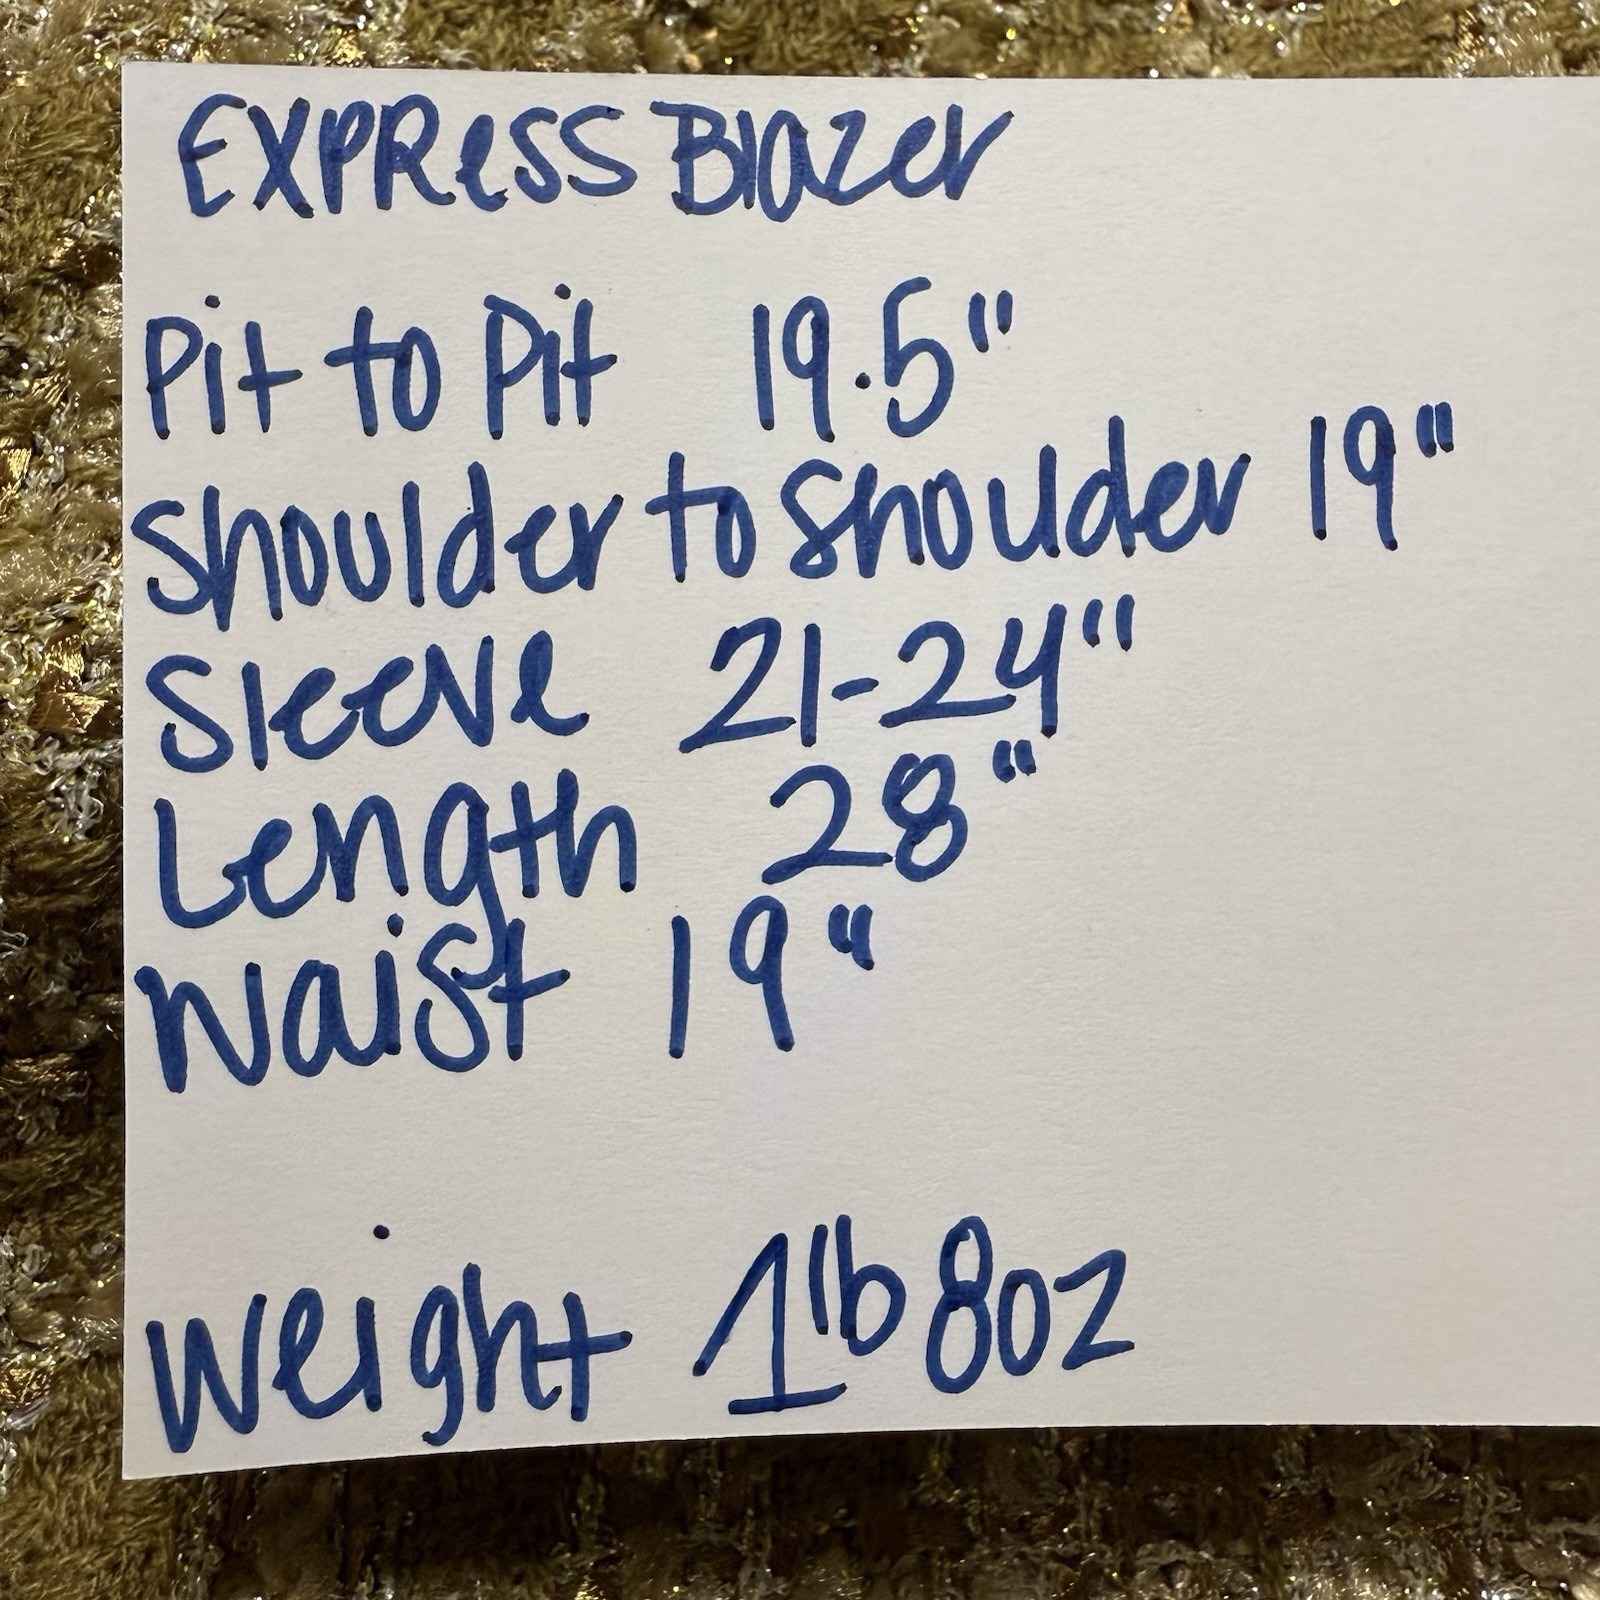 EXPRESS Blazer
Pit to Pit 19.5"
Shoulder to Shoulder 19"
Sleeve 21-24"
Length 28"
Waist 19"
Weight 1lb 8oz